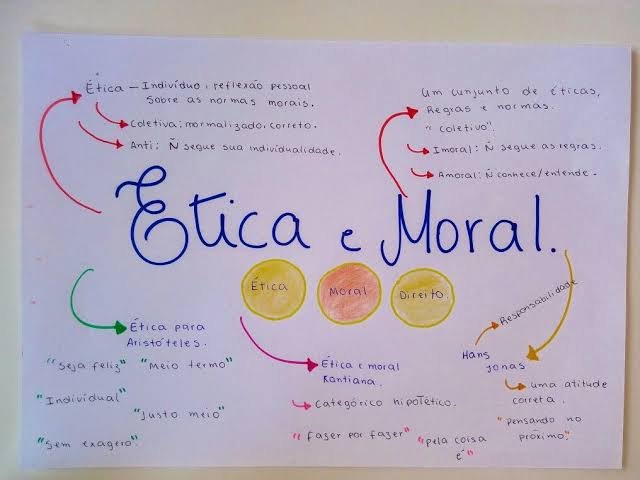 Ética – Indivíduo, reflexão pessoal
sobre as normas morais.
Coletiva: normalizado, correto.
Anti: Ñ segue sua individualidade.
Um cunjunto de éticas,
Regras e normas.
"coletivo".
Imoral: Ñ segue as regras.
Amoral: Ñ conhece/entende.
Ética e Moral.
Ética
Moral
Direito
Ética para
Aristóteles.
"Seja feliz" "Meio termo"
"Individual"
"Justo meio"
"Sem exagero".
Ética e moral
Kantiana.
Categórico hipotético.
"Fazer por fazer"
"pela coisa
é"
Responsabilidade
Hans
Jonas
uma atitude
correta.
"pensando no
próximo".